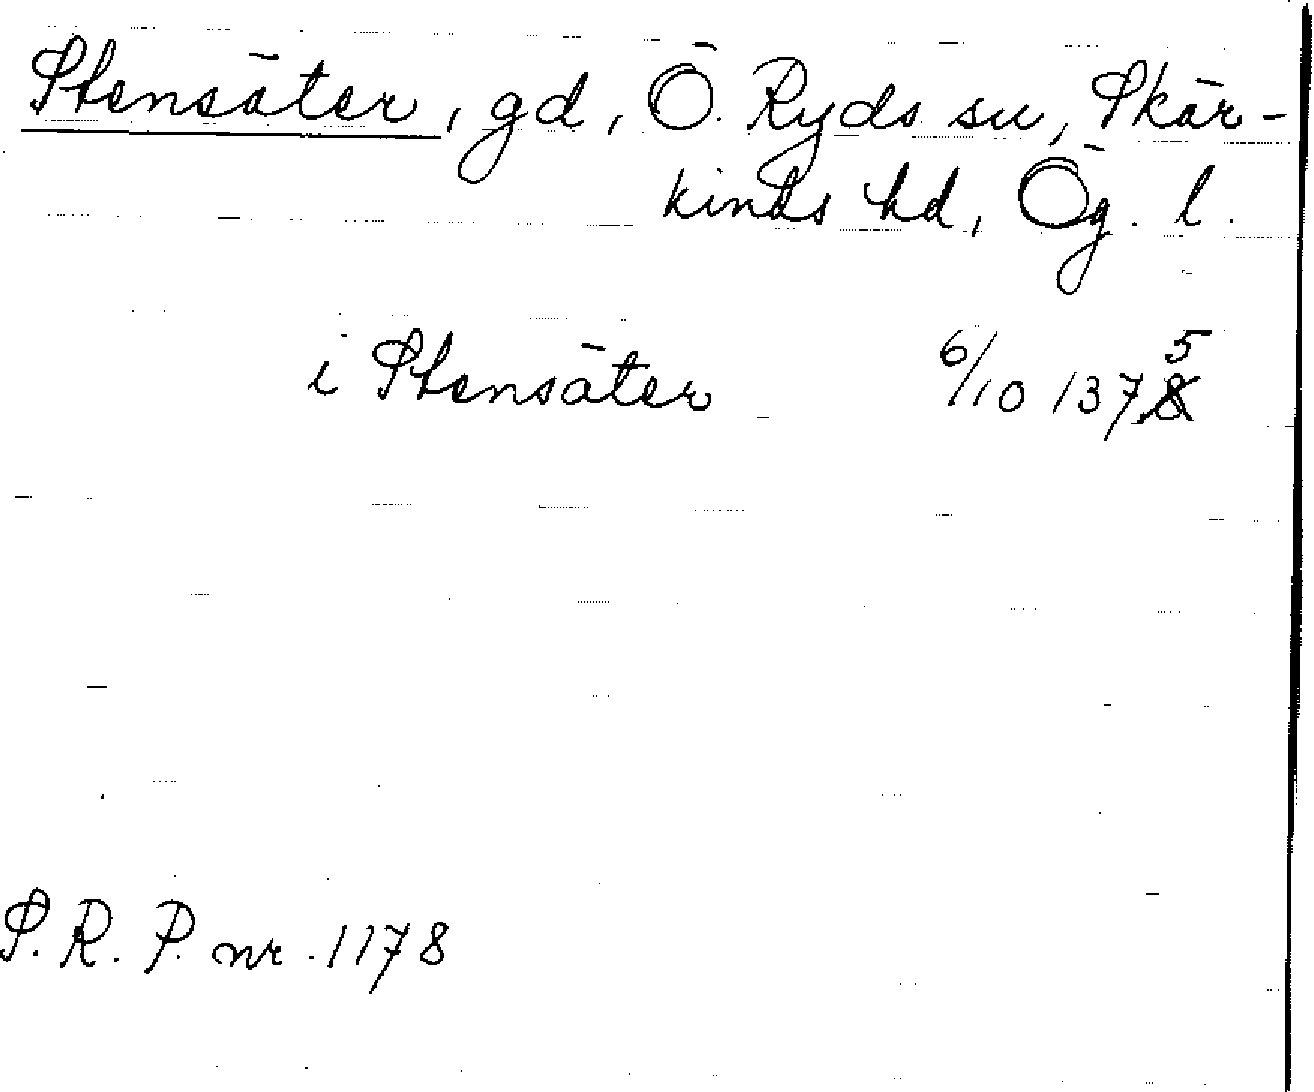 Stensäter, gd, Ö. Ryds sn, Skär-
kinds hd, Ög. l.
i Stensäter 6/10 1375
S.R.P. nr. 1178